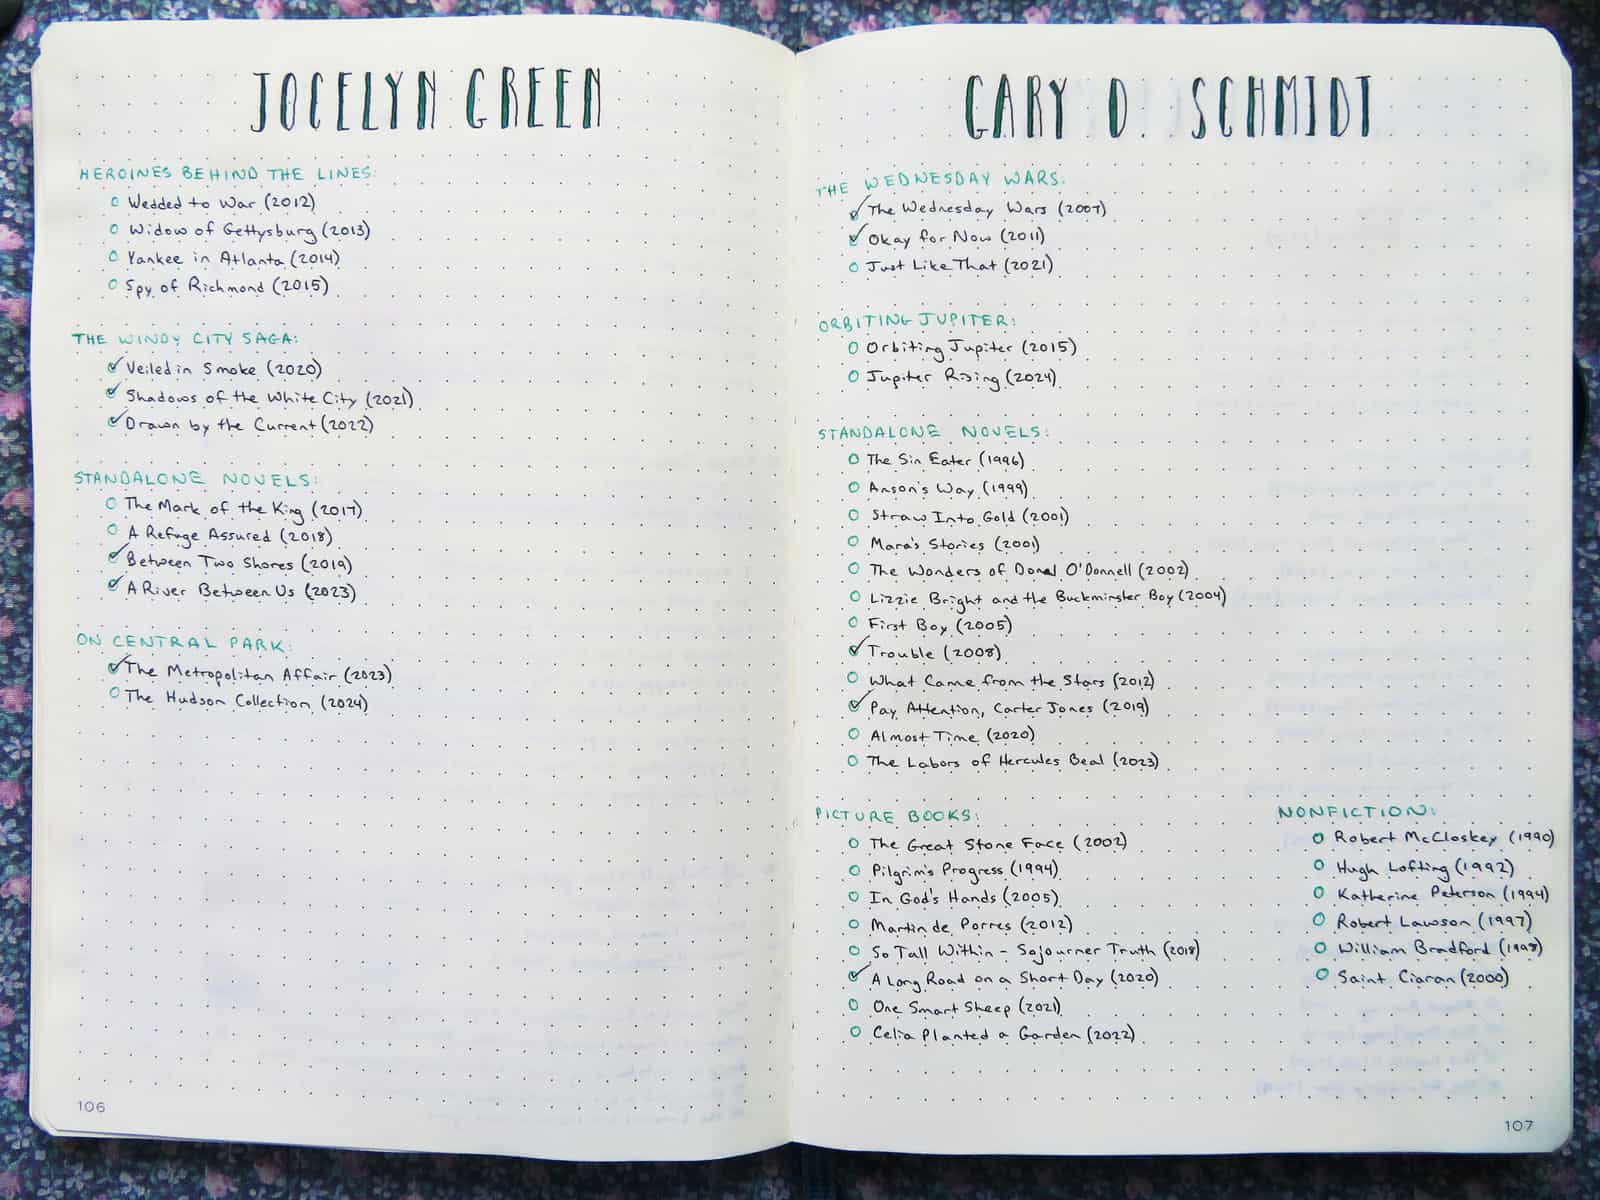 JOCELYN GREEN
HEROINES BEHIND THE LINES:
Wedded to War (2012)
Widow of Gettysburg (2013)
Yankee in Atlanta (2014)
Spy of Richmond (2015)
THE WINDY CITY SAGA:
Veiled in Smoke (2020)
Shadows of the White City (2021)
Drawn by the Current (2022)
STANDALONE NOVELS:
The Mark of the King (2017)
A Refuge Assured (2018)
Between Two Shores (2019)
A River Between Us (2023)
ON CENTRAL PARK:
The Metropolitan Affair (2023)
The Hudson Collection (2024)
106
GARY D. SCHMIDT
THE WEDNESDAY WARS:
The Wednesday Wars (2007)
Okay for Now (2011)
Just Like That (2021)
ORBITING JUPITER:
Orbiting Jupiter (2015)
Jupiter Rising (2024)
STANDALONE NOVELS:
The Sin Eater (1996)
Anson's Way (1999)
Straw Into Gold (2001)
Mara's Stories (2001)
The Wonders of Donal O'Donnell (2002)
Lizzie Bright and the Buckminster Boy (2004)
First Boy (2005)
Trouble (2008)
What Came from the Stars (2012)
Pay Attention, Carter Jones (2019)
Almost Time (2020)
The Labors of Hercules Beal (2023)
PICTURE BOOKS:
The Great Stone Face (2002)
Pilgrim's Progress (1994)
In God's Hands (2005)
Martin de Porres (2012)
So Tall Within - Sojourner Truth (2018)
A Long Road on a Short Day (2020)
One Smart Sheep (2021)
Celia Planted a Garden (2022)
NONFICTION:
Robert McCloskey (1990)
Hugh Lofting (1992)
Katherine Peterson (1994)
Robert Lawson (1997)
William Bradford (1998)
Saint Ciaran (2000)
107